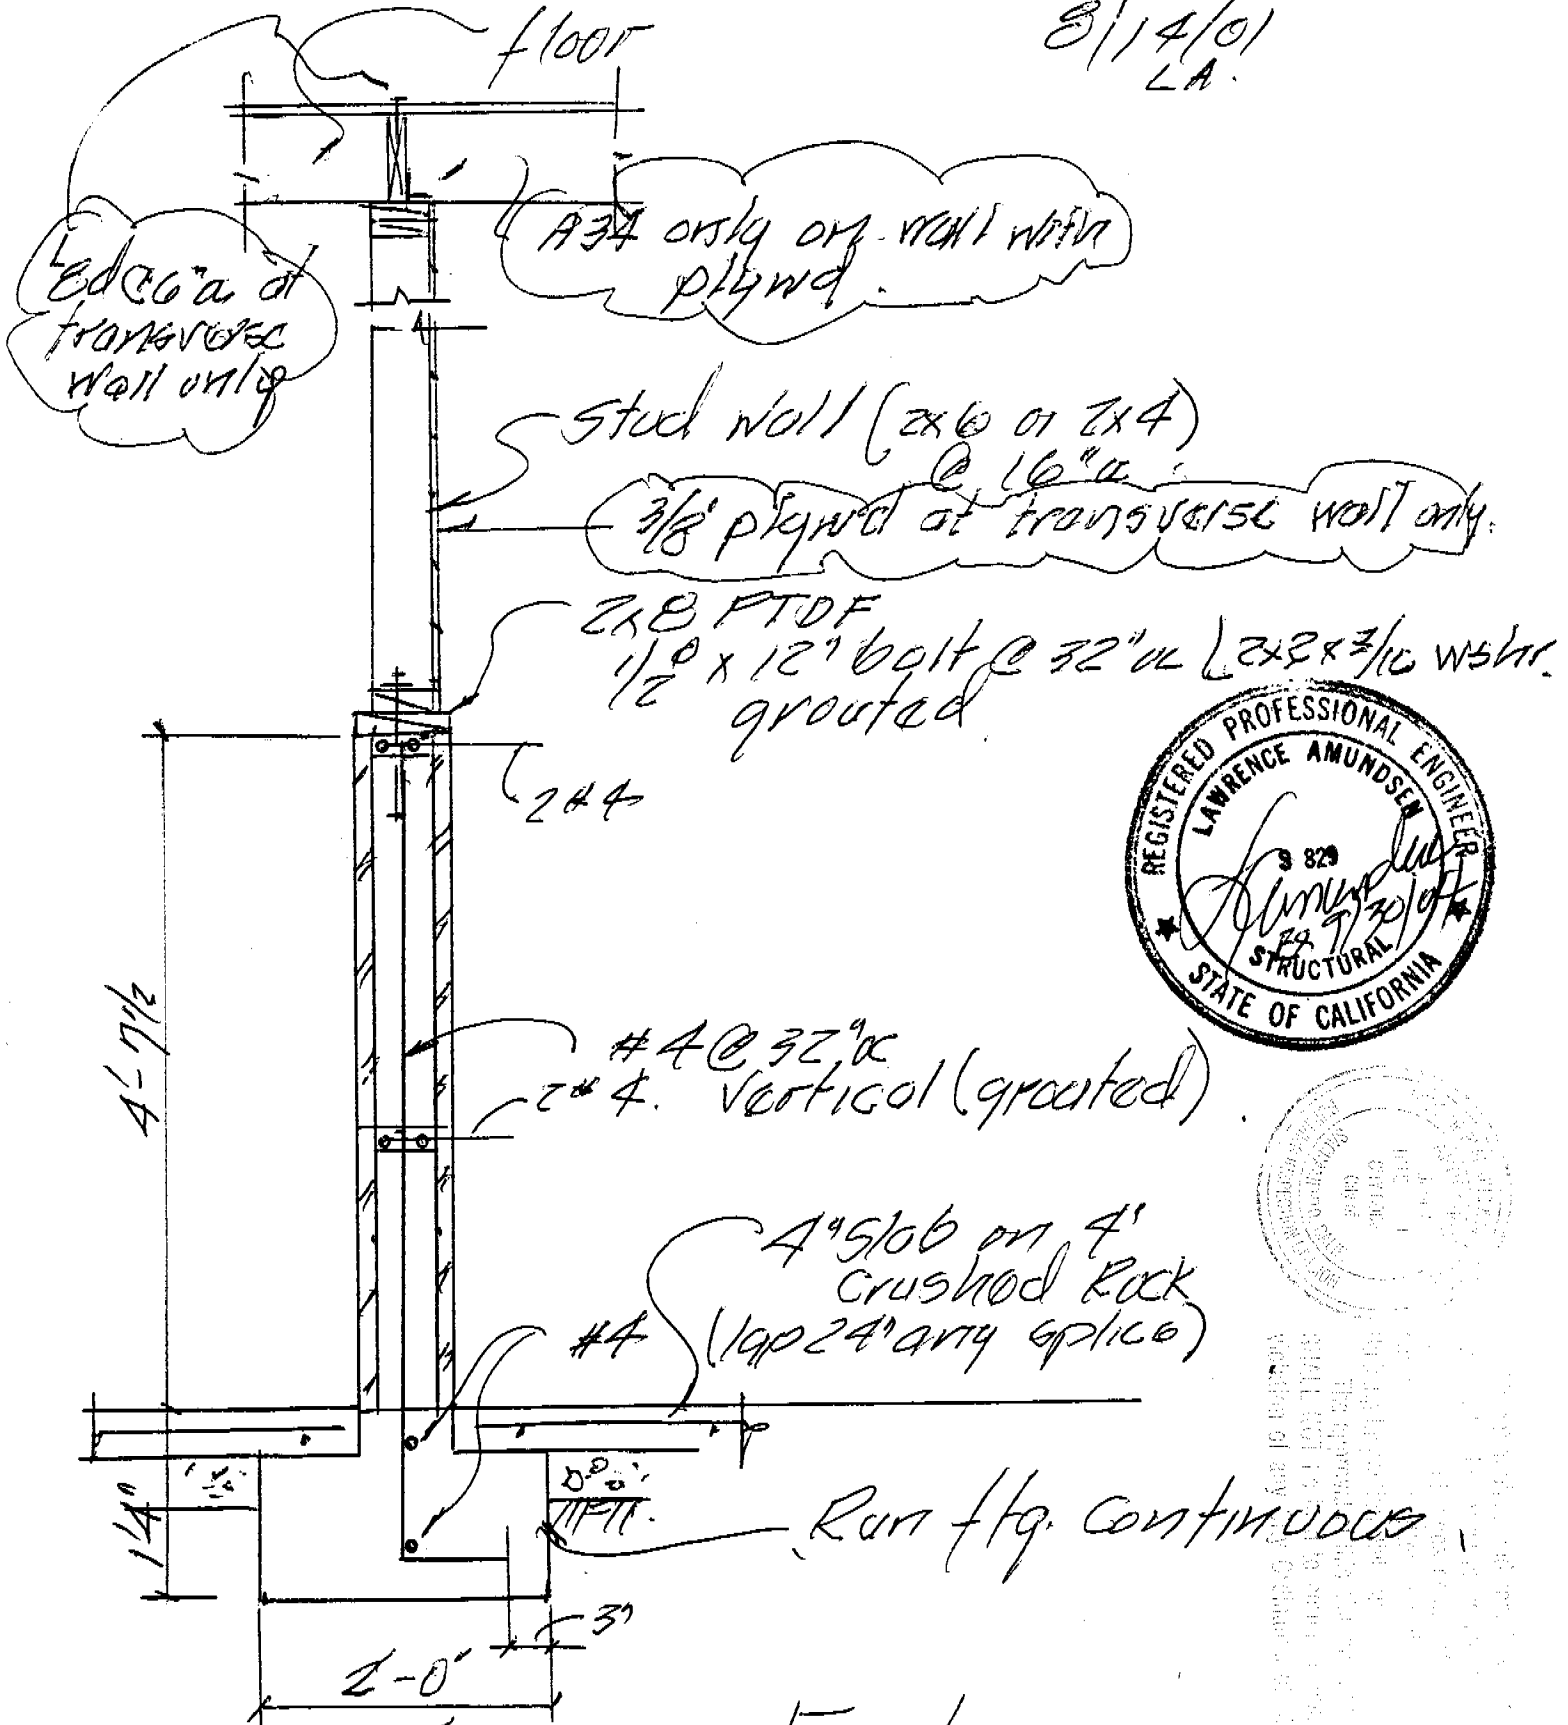 floor
8/14/01
LA.
A34 only on wall with
plywd.
8d@6"oc at
transverse
wall only
Stud wall (2x6 or 2x4)
@ 16"oc
3/8" plywd at transverse wall only.
2x8 PTDF
1/2"ø x 12" bolt @ 32"oc 2x2x3/16 wshr.
grouted
2#4
REGISTERED PROFESSIONAL ENGINEER
LAWRENCE AMUNDSEN
S 829
9/30/04
STRUCTURAL
STATE OF CALIFORNIA
4'-7 1/2
#4 @ 32"oc
2#4. Vertical (grouted)
4" Slab on 4"
Crushed Rock
#4 (lap 24" any splice)
1'4"
Run ftg. Continuous
3"
2'-0"